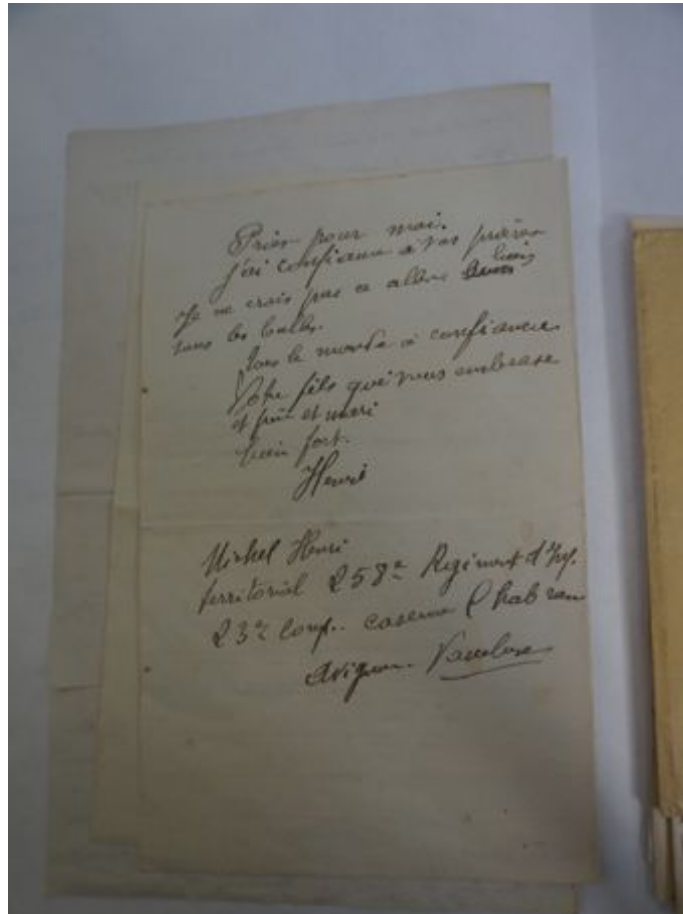 Priez pour moi.
j'ai confiance à vos prières
Je ne crois pas ce aller
sous les balles.
Tous le monde a confiance
Votre fils qui vous embrasse
et frère et mari
bien fort.
Henri
Michel Henri
territorial 258e Régiment d'Inf.
23e Comp. caserne Chabran
Avignon. Vaucluse